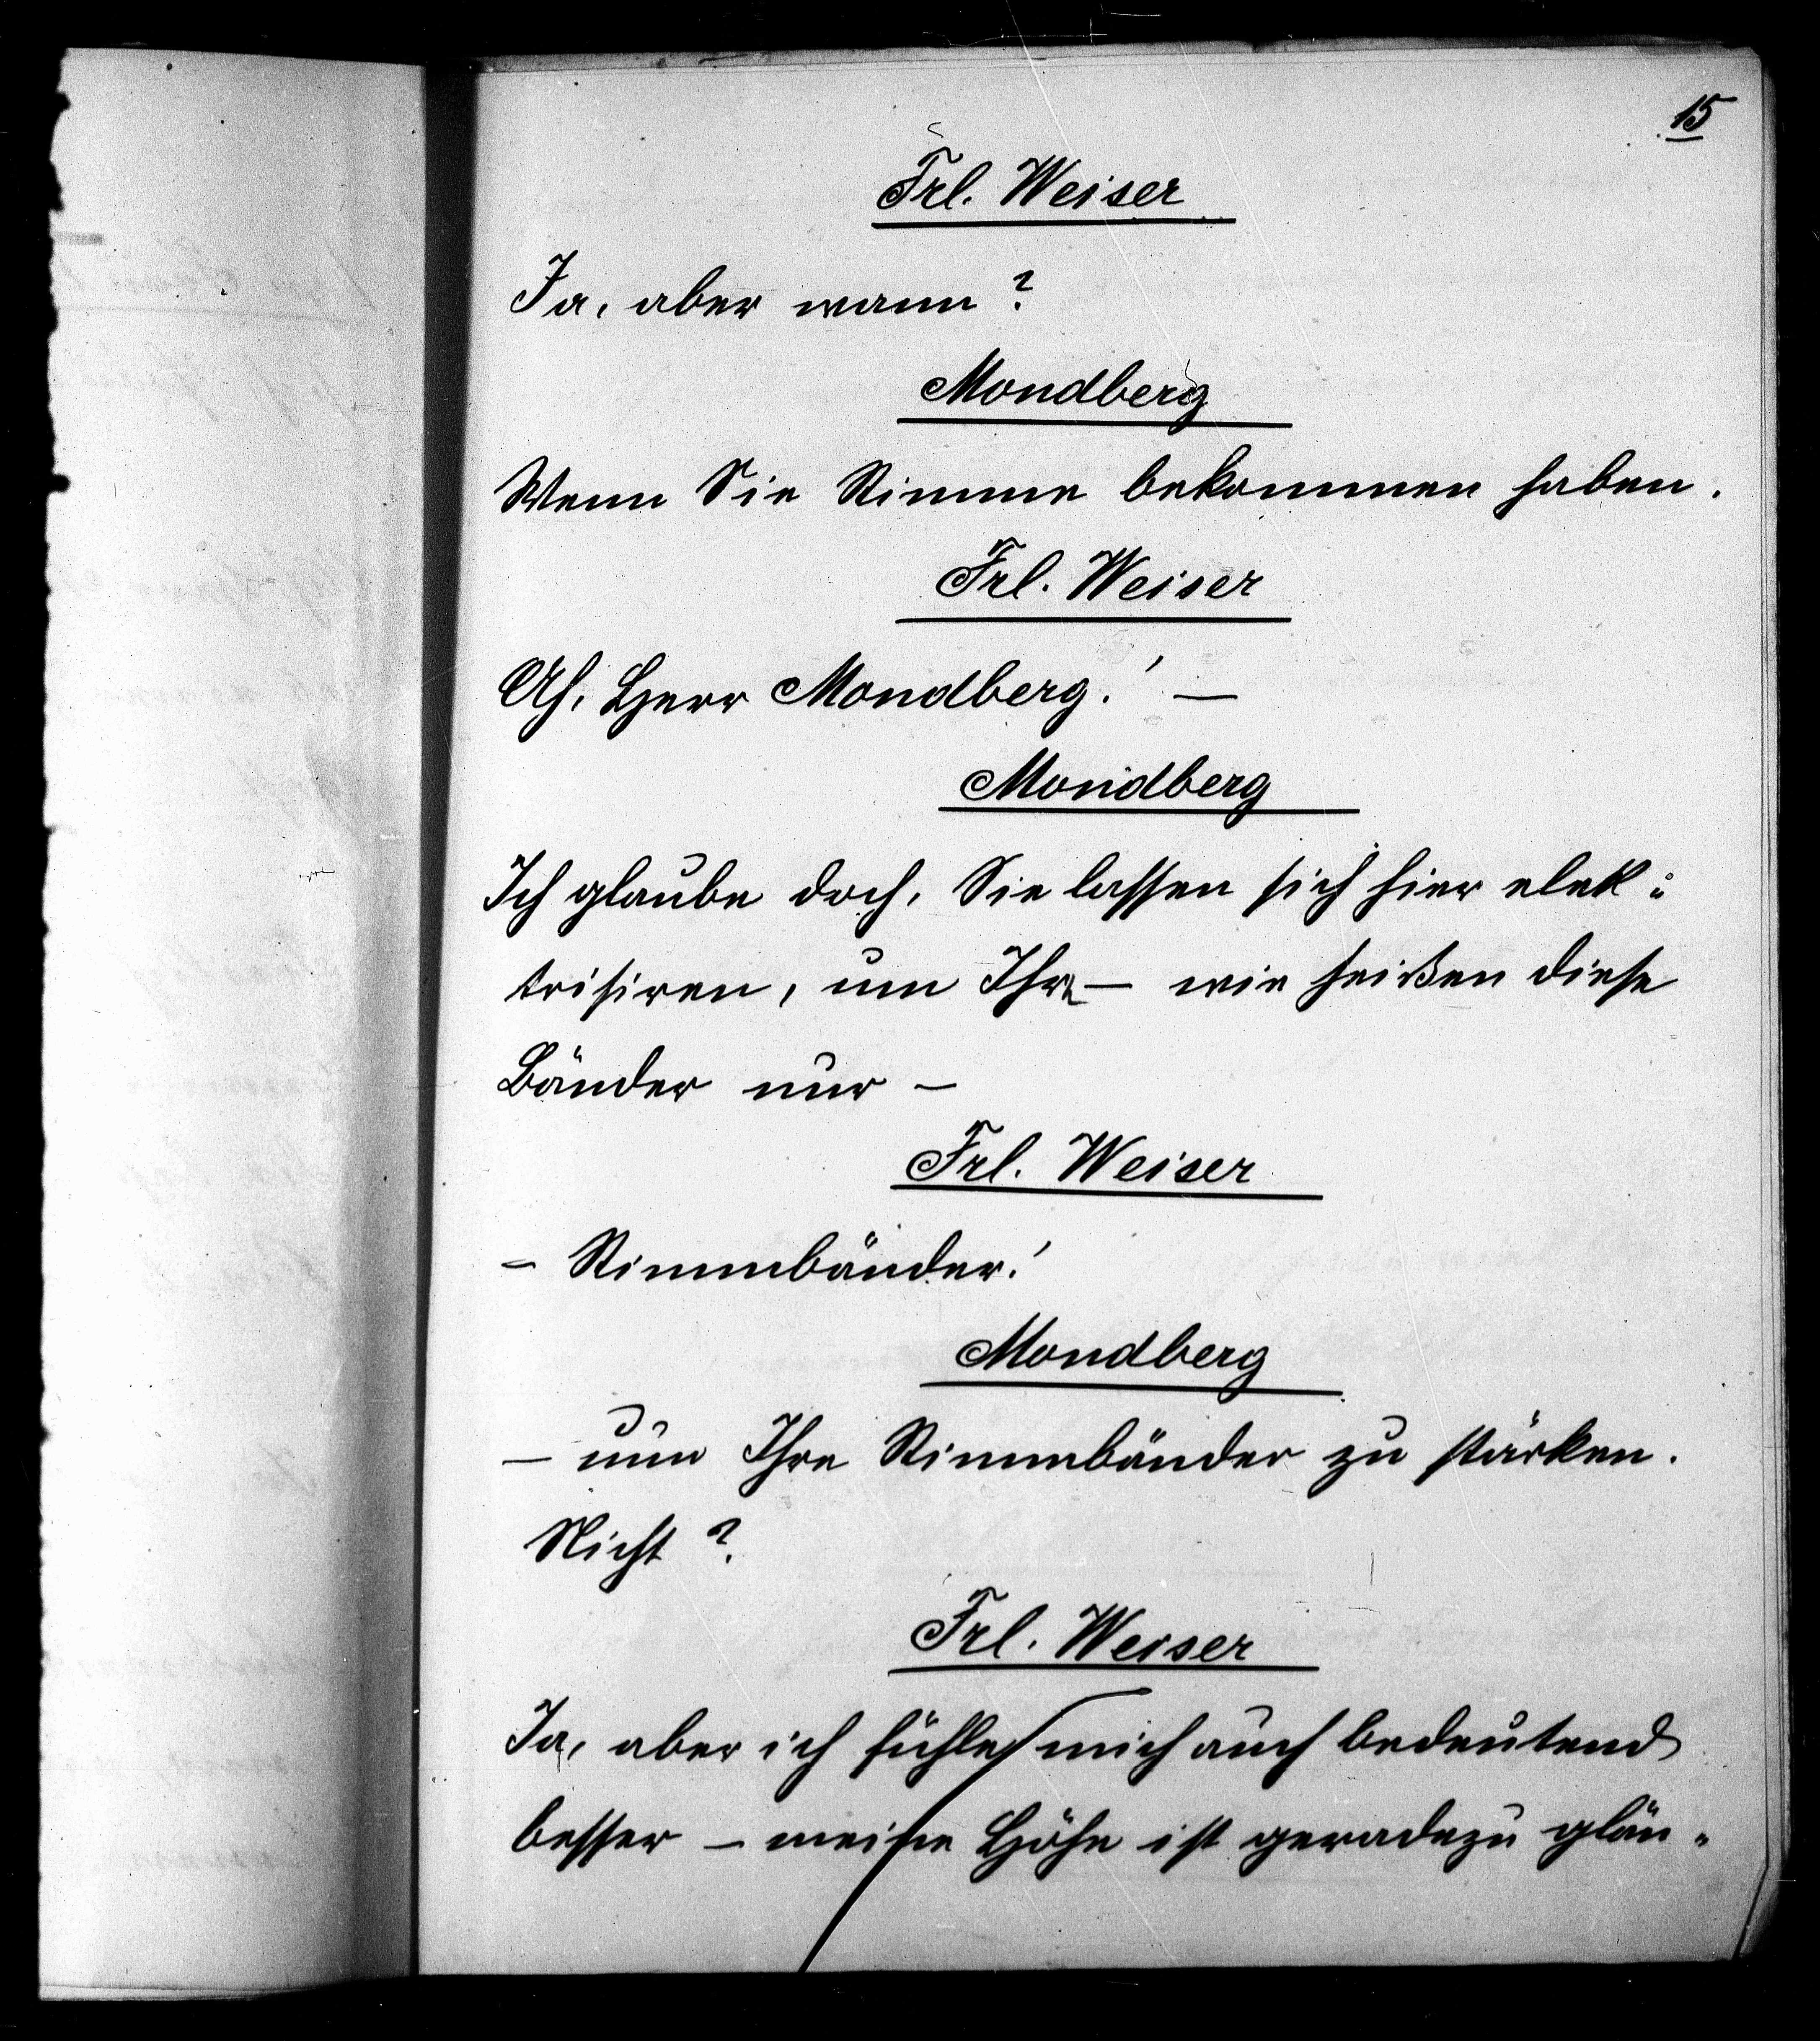 15
Frl. Weiser
Ja, aber wann?
Mondberg
Wenn Sie Stimme bekommen haben.
Frl. Weiser
Ah, Herr Mondberg! —
Mondberg
Ich glaube doch, Sie lassen sich hier elek-
trisiren, um Ihre — wie heißen diese
Bänder nur —
Frl. Weiser
— Stimmbänder!
Mondberg
— um Ihre Stimmbänder zu stärken.
Nicht?
Frl. Weiser
Ja, aber ich fühle mich auch bedeutend
besser — meine Höhe ist geradezu glän-